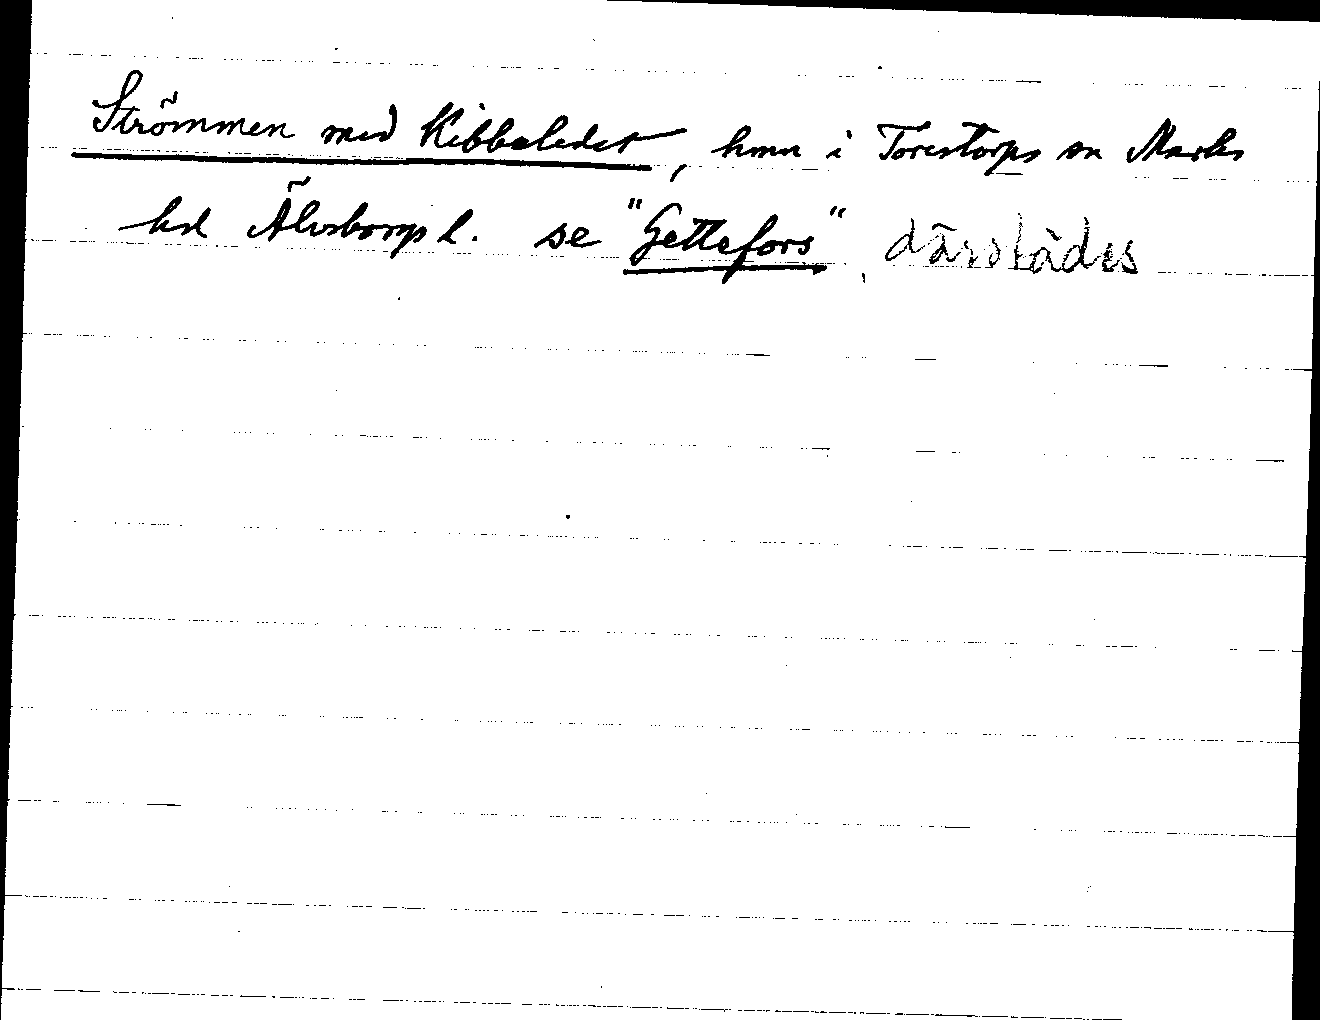 Strömmen med Kibbeledet, hmn i Torestorps sn Marks
hd Älvsborgs l. se "Gettefors", därstädes